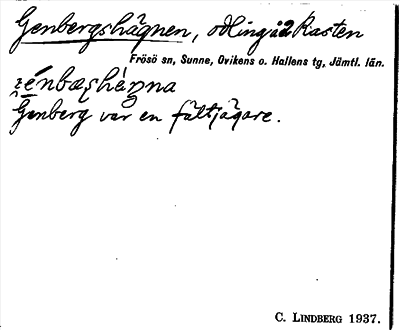 Genbergshägnen, Mingåkasten
Frösö sn, Sunne, Ovikens o. Hallens tg, Jämtl. län.
Genberg var en fältjägare.
C. LINDBERG 1937.